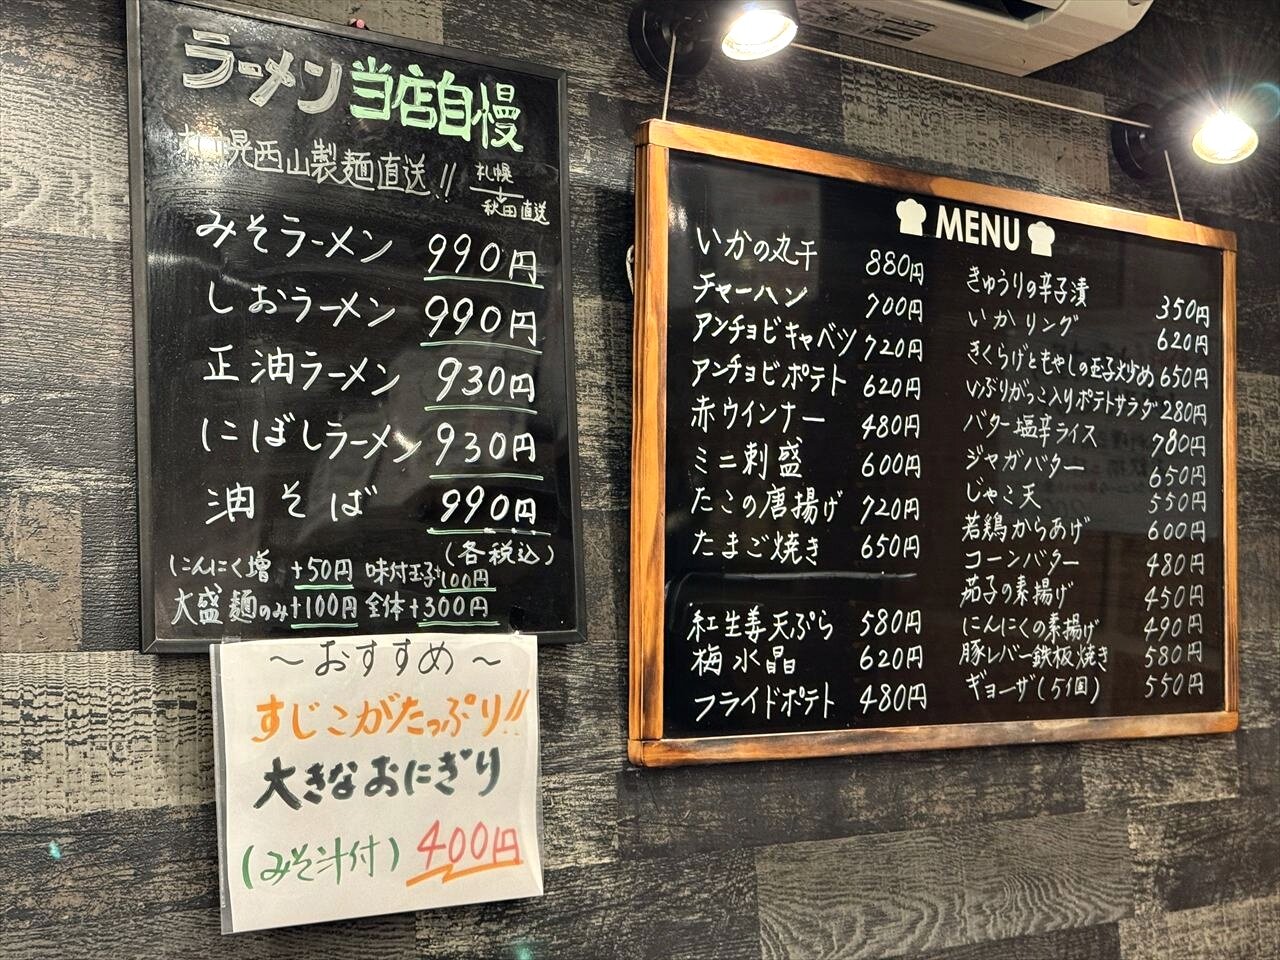 ラーメン当店自慢
札幌西山製麺直送!!
札幌
→
秋田直送
みそラーメン 990円
しおラーメン 990円
正油ラーメン 930円
にぼしラーメン 930円
油そば 990円
(各税込)
にんにく増 +50円 味付玉子+100円
大盛麺のみ+100円 全体+300円
~おすすめ~
すじこがたっぷり!!
大きなおにぎり
(みそ汁付) 400円
MENU
いかの丸干 880円
チャーハン 700円
アンチョビキャベツ 720円
アンチョビポテト 620円
赤ウインナー 480円
ミニ刺盛 600円
たこの唐揚げ 720円
たまご焼き 650円
紅生姜天ぷら 580円
梅水晶 620円
フライドポテト 480円
きゅうりの辛子漬 350円
いかリング 620円
きくらげともやしの玉子炒め 650円
いぶりがっこ入りポテトサラダ 280円
バター塩辛ライス 780円
ジャガバター 650円
じゃこ天 550円
若鶏からあげ 600円
コーンバター 480円
茄子の素揚げ 450円
にんにくの素揚げ 490円
豚レバー鉄板焼き 580円
ギョーザ(5個) 550円